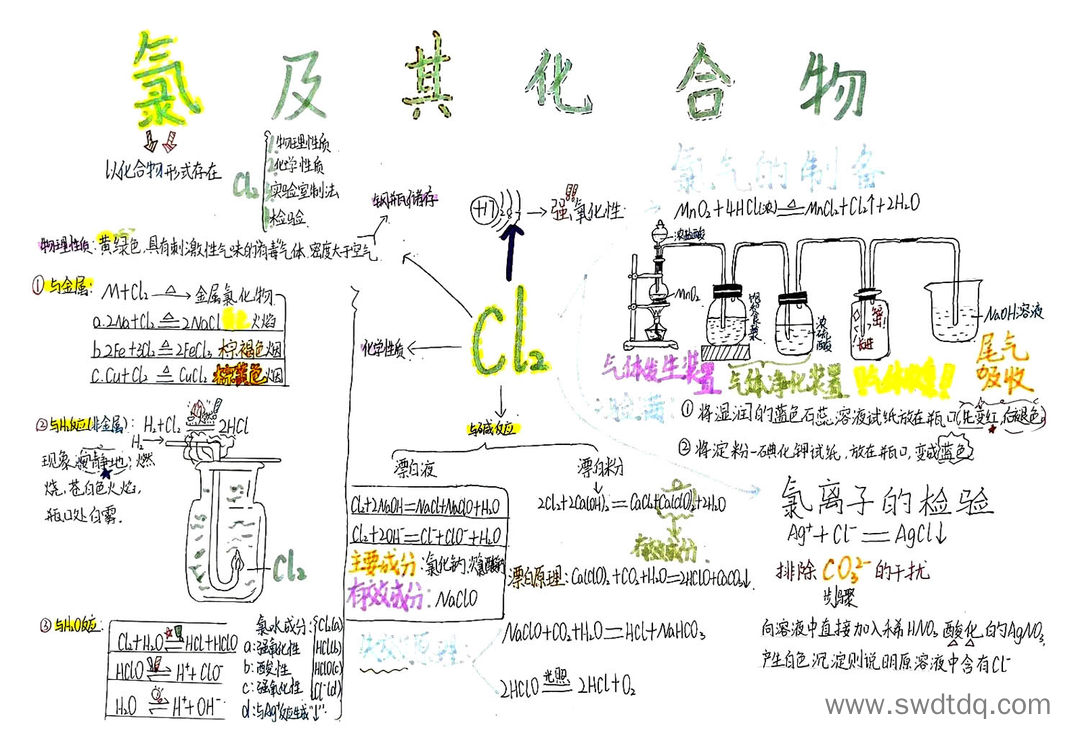 氯及其化合物
以化合物形式存在
Cl₂
1.物理性质
2.化学性质
3.实验室制法
4.检验
钢瓶储存
物理性质:黄绿色,具有刺激性气味的有毒气体,密度大于空气
①与金属: M+Cl₂ △→ 金属氯化物
a.2Na+Cl₂ △= 2NaCl 火焰
b.2Fe+3Cl₂ △= 2FeCl₃ 棕褐色烟
c.Cu+Cl₂ △= CuCl₂ 棕黄色烟
②与H₂反应(非金属): H₂+Cl₂ 2HCl
H₂
现象:安静地燃
烧,苍白色火焰,
瓶口处白雾.
Cl₂
③与H₂O反应:
Cl₂+H₂O⇌HCl+HClO
HClO⇌H⁺+ClO⁻
H₂O⇌H⁺+OH⁻
氯水成分:
Cl₂(a)
HCl(b)
HClO(c)
Cl⁻(d)
a:强氧化性
b:酸性
c:强氧化性
d:与Ag⁺反应生成"↓"
+17
强氧化性
Cl₂
化学性质
与碱反应
漂白液
Cl₂+2NaOH=NaCl+NaClO+H₂O
Cl₂+2OH⁻=Cl⁻+ClO⁻+H₂O
主要成分:氯化钠,次氯酸钠
有效成分:NaClO
漂白粉
2Cl₂+2Ca(OH)₂=CaCl₂+Ca(ClO)₂+2H₂O
有效成分
漂白原理:Ca(ClO)₂+CO₂+H₂O=2HClO+CaCO₃↓
NaClO+CO₂+H₂O=HCl+NaHCO₃
2HClO 光照= 2HCl+O₂
氯气的制备
MnO₂+4HCl(浓) △= MnCl₂+Cl₂↑+2H₂O
浓盐酸
MnO₂
饱和食盐
浓硫酸
NaOH溶液
气体发生装置
气体净化装置
尾气
吸收
①将湿润的蓝色石蕊溶液试纸放在瓶口(先变红,后褪色)
②将淀粉-碘化钾试纸,放在瓶口,变成蓝色
氯离子的检验
Ag⁺+Cl⁻=AgCl↓
排除CO₃²⁻的干扰
步骤
向溶液中直接加入稀HNO₃酸化的AgNO₃,
产生白色沉淀则说明原溶液中含有Cl⁻
www.swdtdq.com